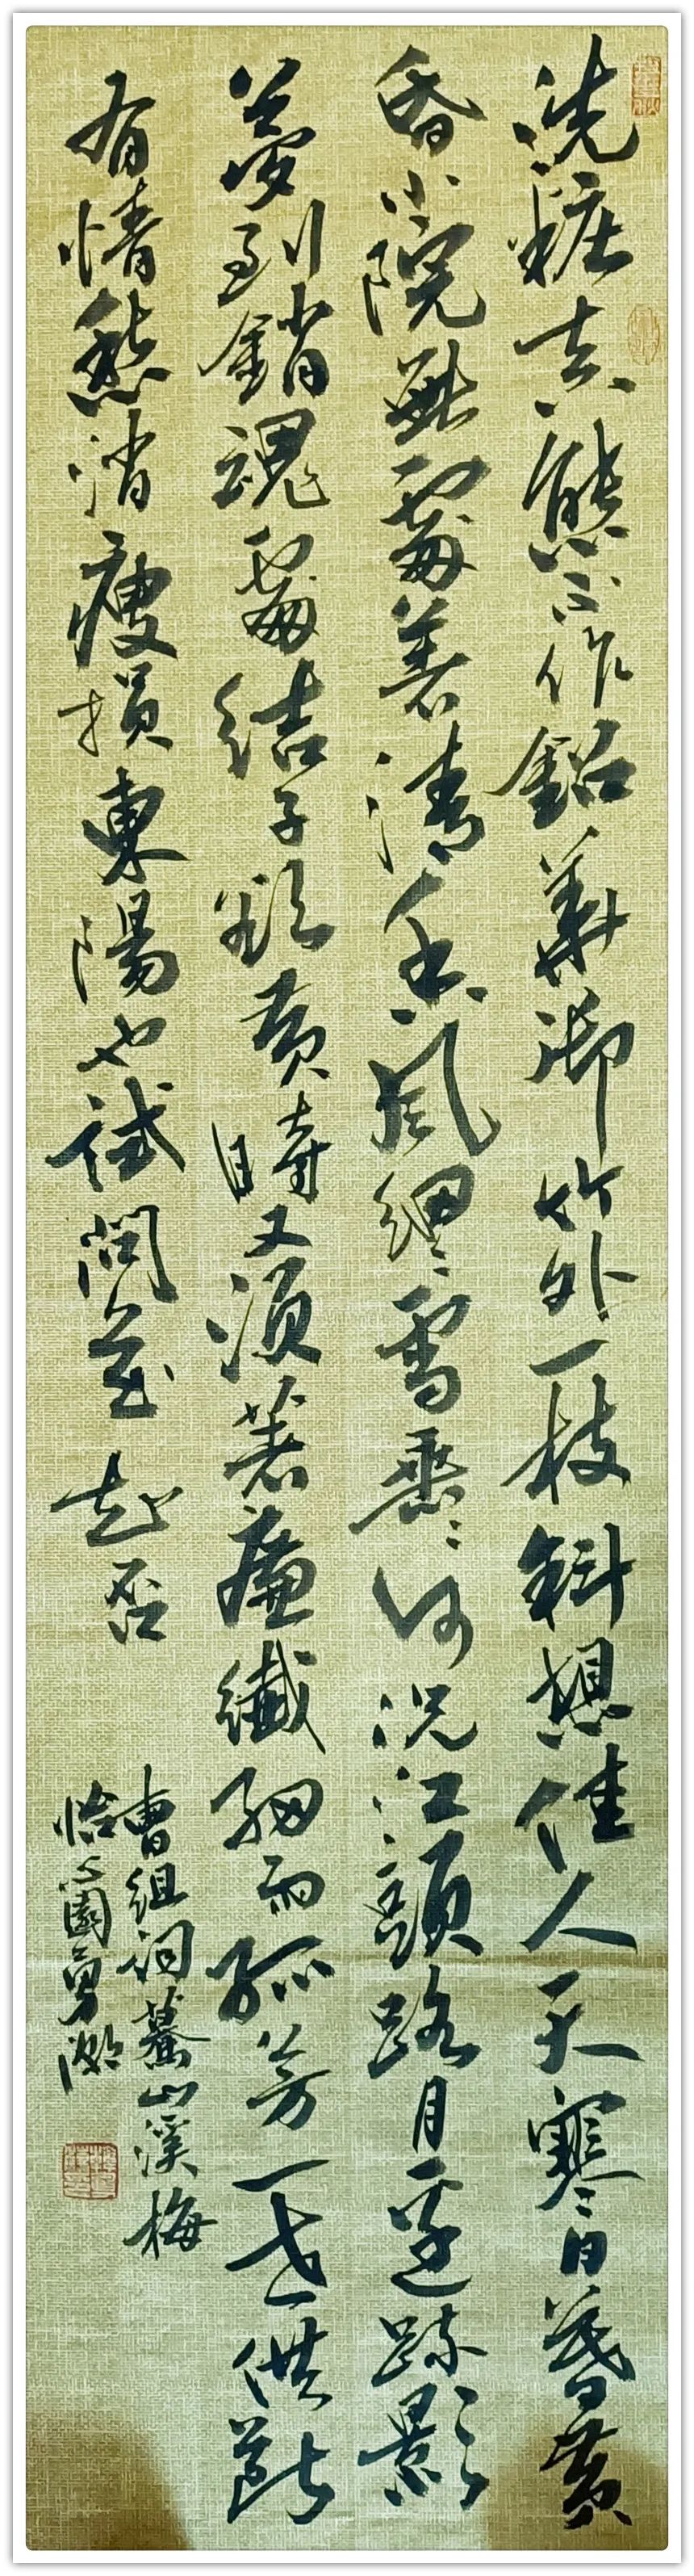 洗糚真態不作鉛華御竹外一枝斜想佳人天寒日暮黄
昏小院無處著清香風細〻雪垂〻何況江頭路月邊疎影
夢到銷魂處結子欲黄時又須著廉纖細雨孤芳一世供斷
有情愁消瘦損東陽也試問花知否
曹組詞驀山溪梅
怡心園勇